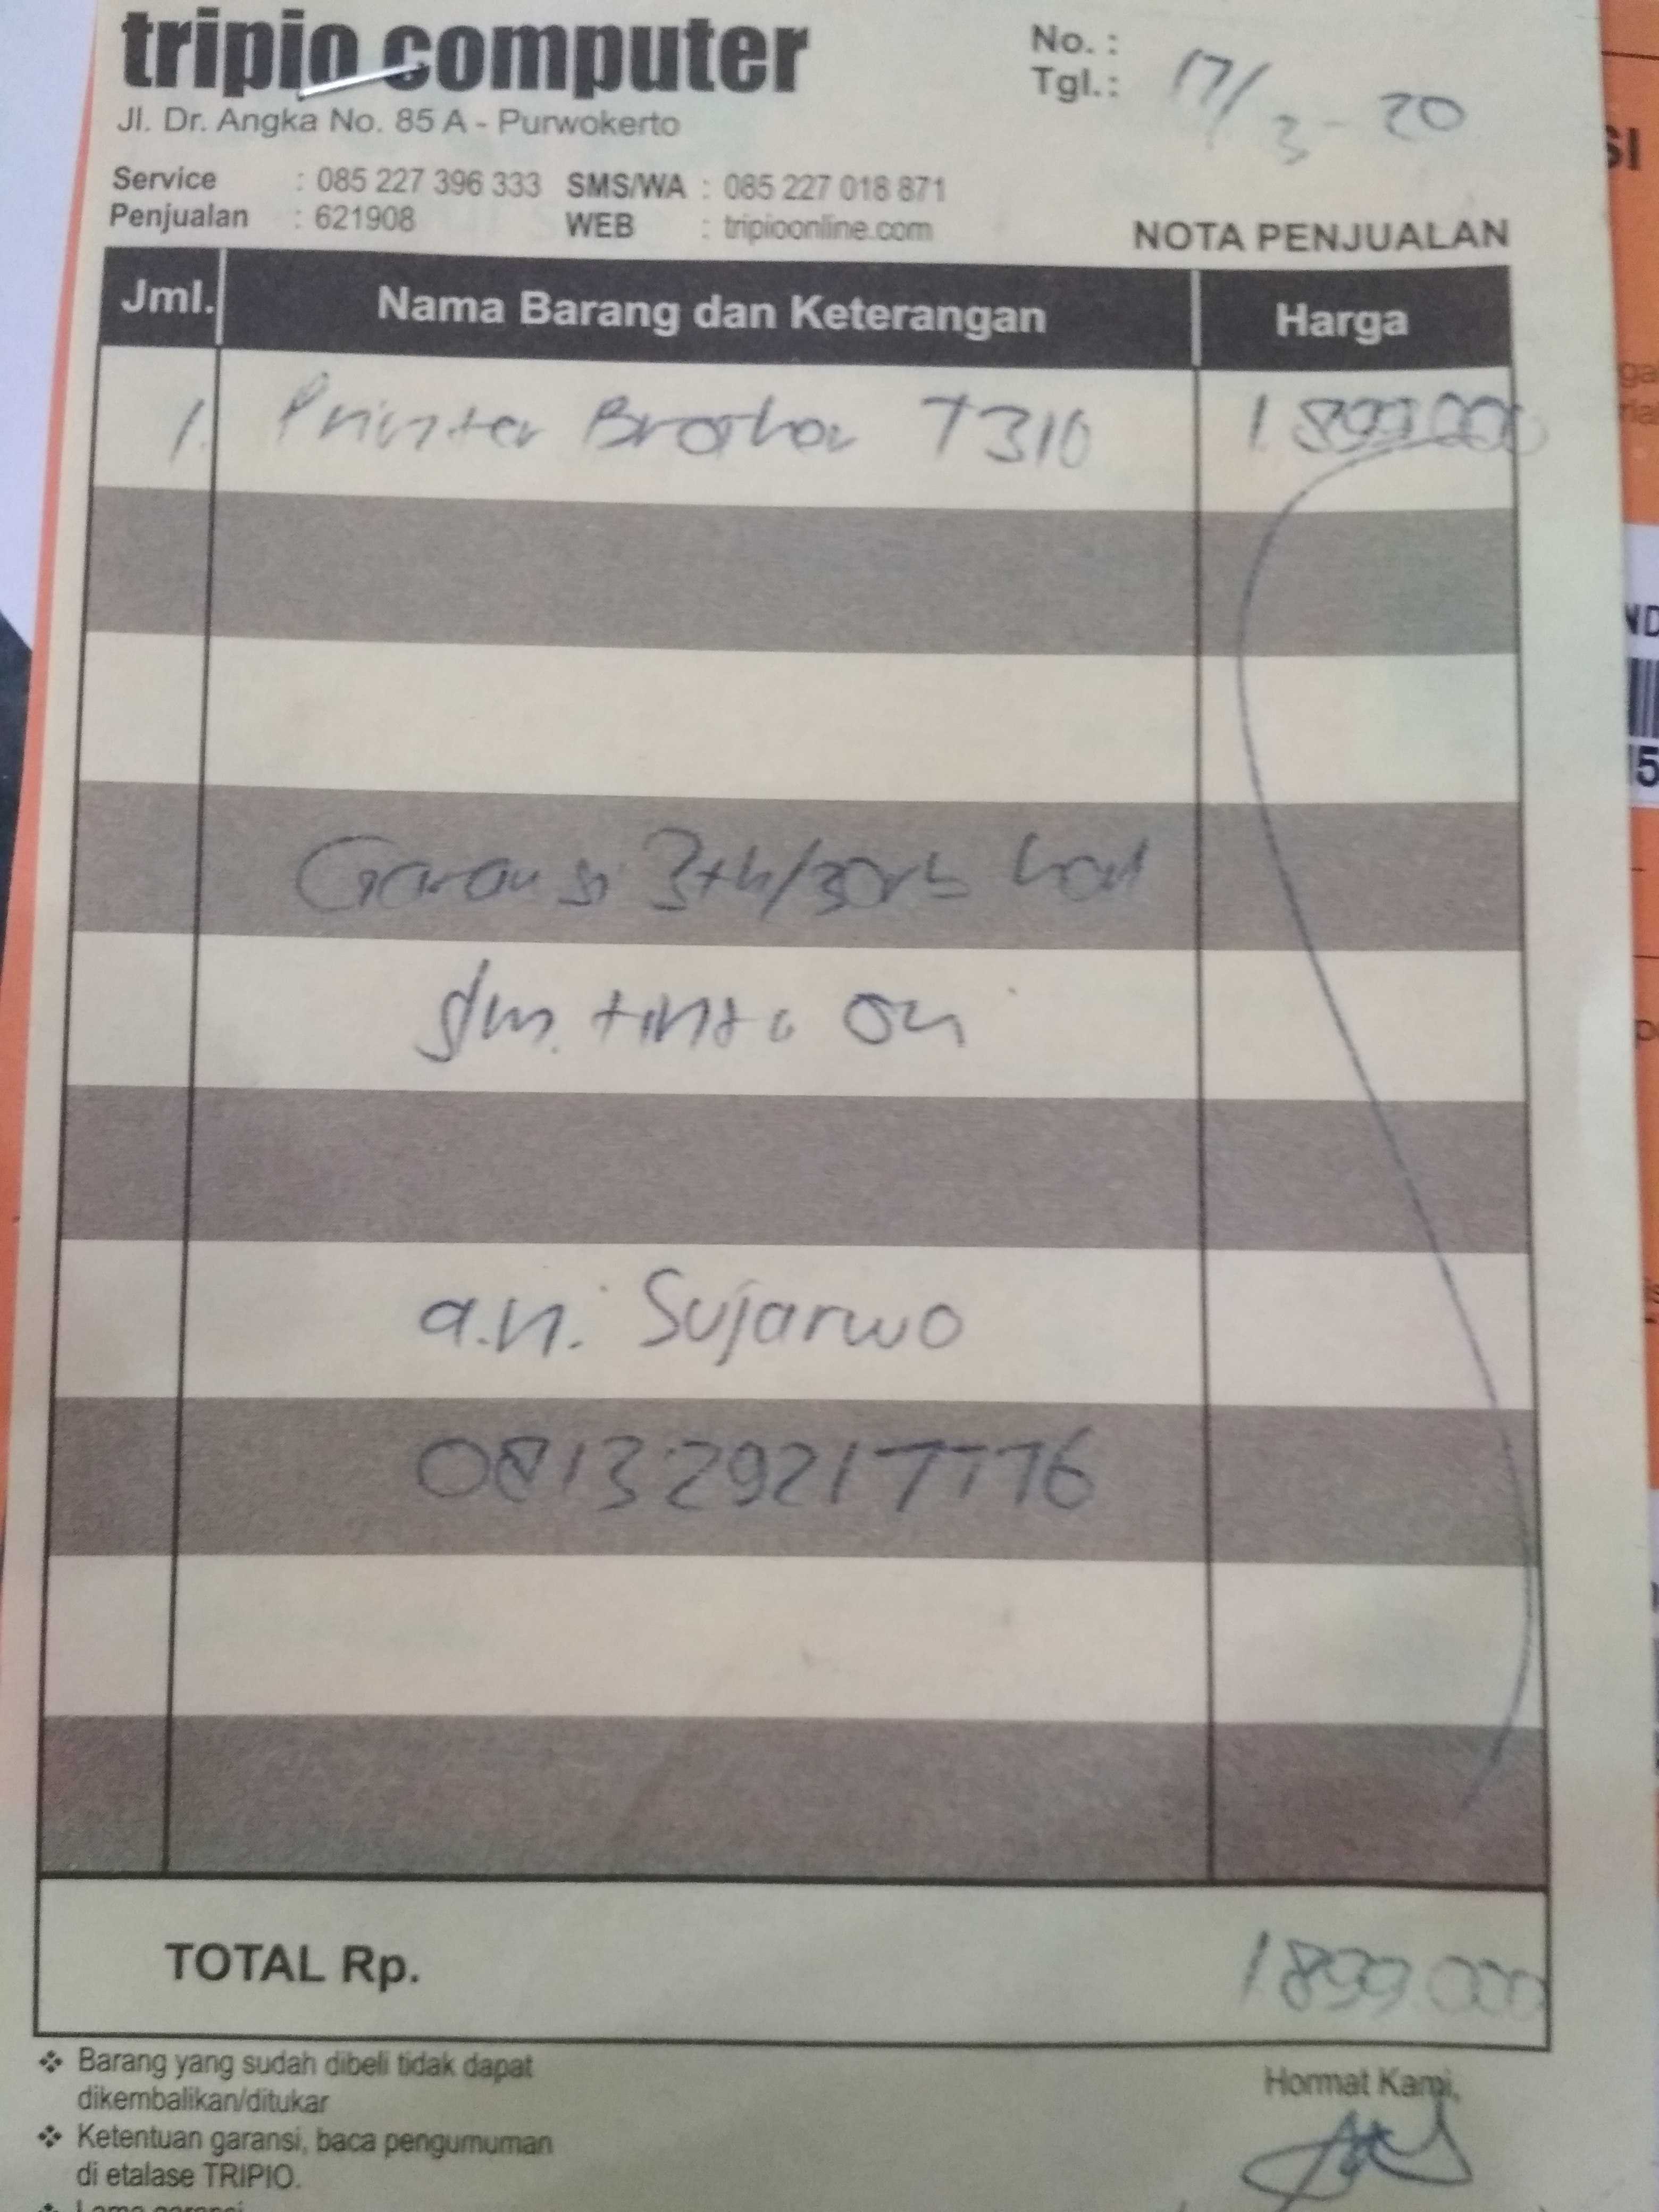 tripio computer
Jl. Dr. Angka No. 85 A - Purwokerto
No. :
Tgl. : 17/3-20
Service : 085 227 396 333 SMS/WA : 085 227 018 871
Penjualan : 621908 WEB : tripioonline.com
NOTA PENJUALAN
Jml. Nama Barang dan Keterangan Harga
1. Printer Brother T310 1.899.000
Garansi 3th/30rb hal
dm. tinta ori
a.n. Sujarwo
081329217776
TOTAL Rp. 1899.000
❖ Barang yang sudah dibeli tidak dapat
dikembalikan/ditukar
❖ Ketentuan garansi, baca pengumuman
di etalase TRIPIO.
❖ Lama garansi
Hormat Kami,
SI
ND
5